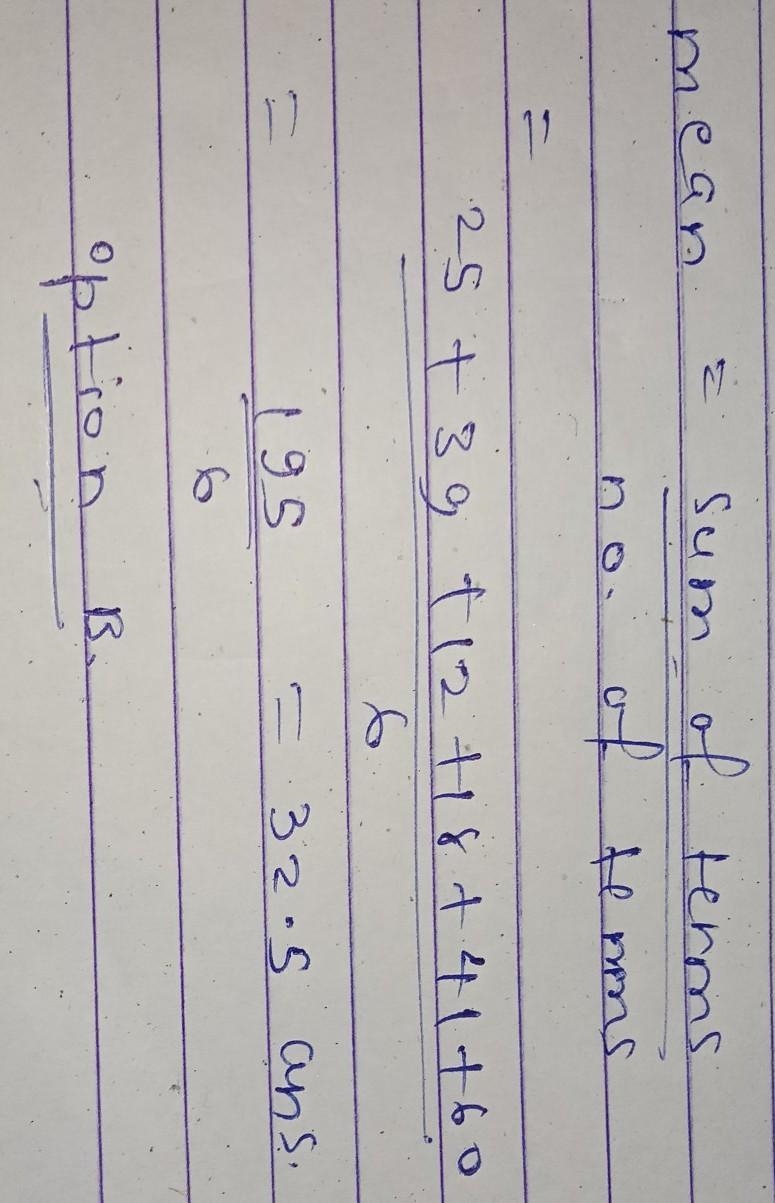 mean = sum of terms
no. of terms
= 25 + 39 + 12 + 18 + 41 + 60
6
= 195 = 32.5 ans.
6
option B.